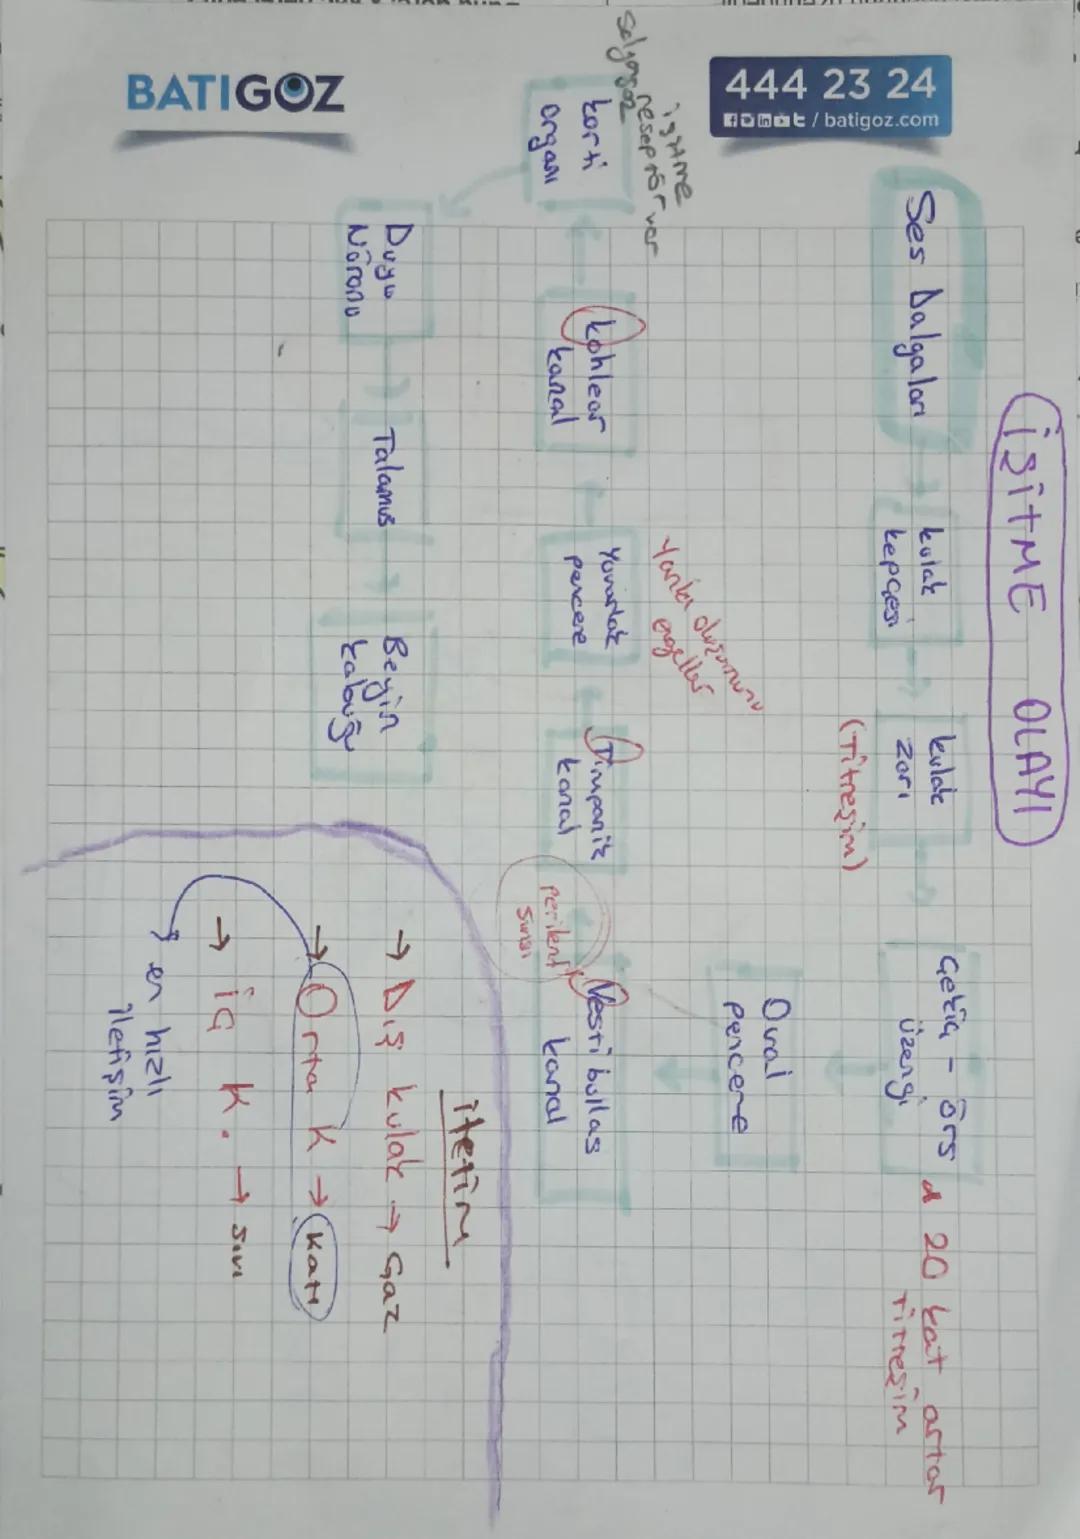 BATIGOZ
444 23 24
/ batigoz.com
İŞİTME OLAYI
Ses Dalgaları
kulak
kepçesi
kulak
zarı
(Titreşim)
Gekiç - örs
üzengi
20 kat artar
titreşim
Oval
pencere
Vestibullas
kanal
perilenf
sıvısı
Timpanik
kanal
Yuvarlak
pencere
Yankı oluşumunu
engeller
kohlear
kanal
korti
organı
işitme
reseptör var
Salyangoz
Duyu
Nöronu
Talamus
Beyin
kabuğu
iletim
→ Dış kulak → Gaz
→ Orta K → Katı
→ İç K. → Sıvı
en hızlı
iletişim